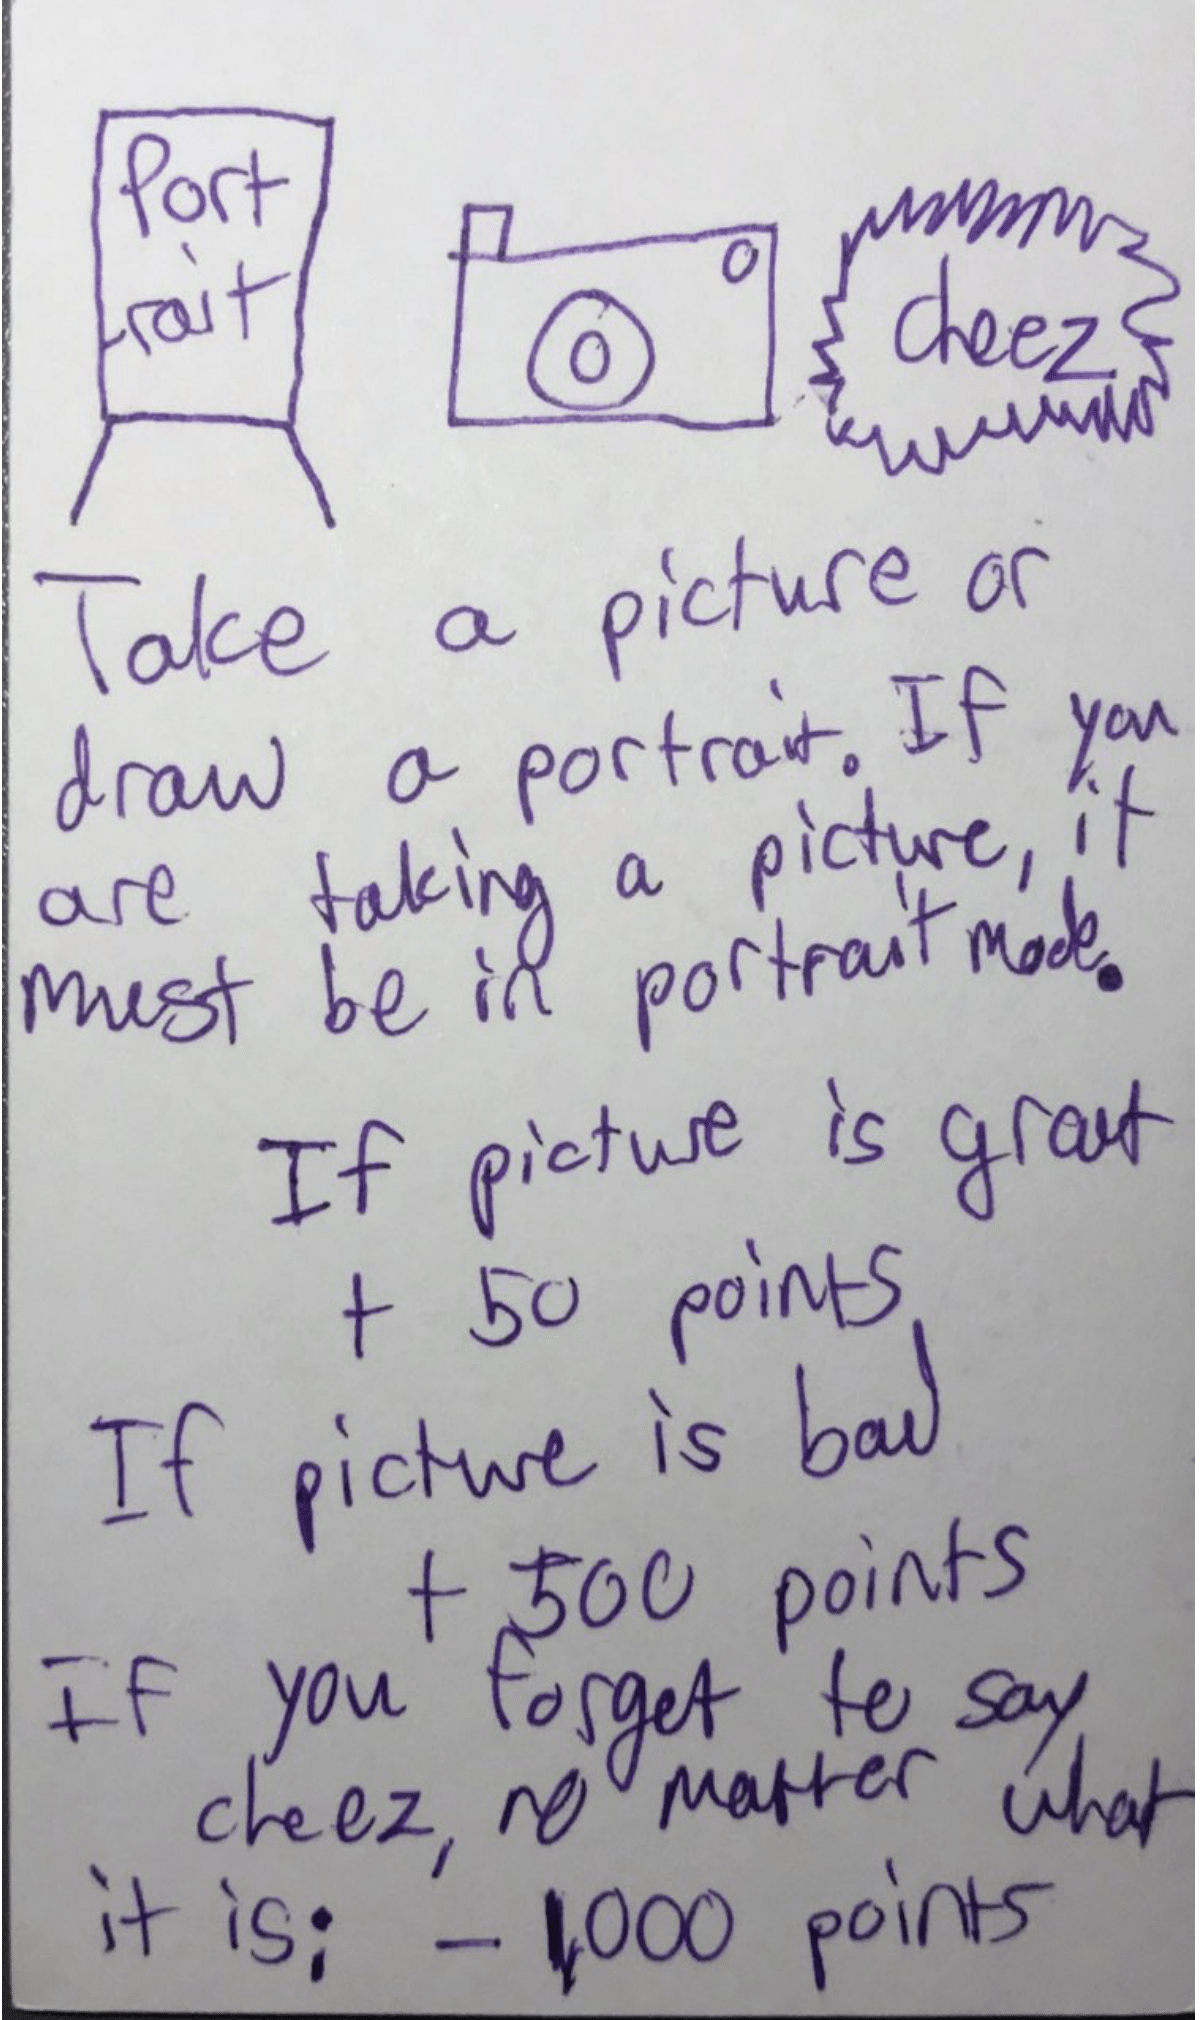 Port
rait
cheez
Take a picture or
draw a portrait. If you
are taking a picture, it
must be in portrait mode.
If picture is great
+ 50 points
If picture is bad
+ 500 points
If you forget to say
cheez, no matter what
it is: - 1,000 points